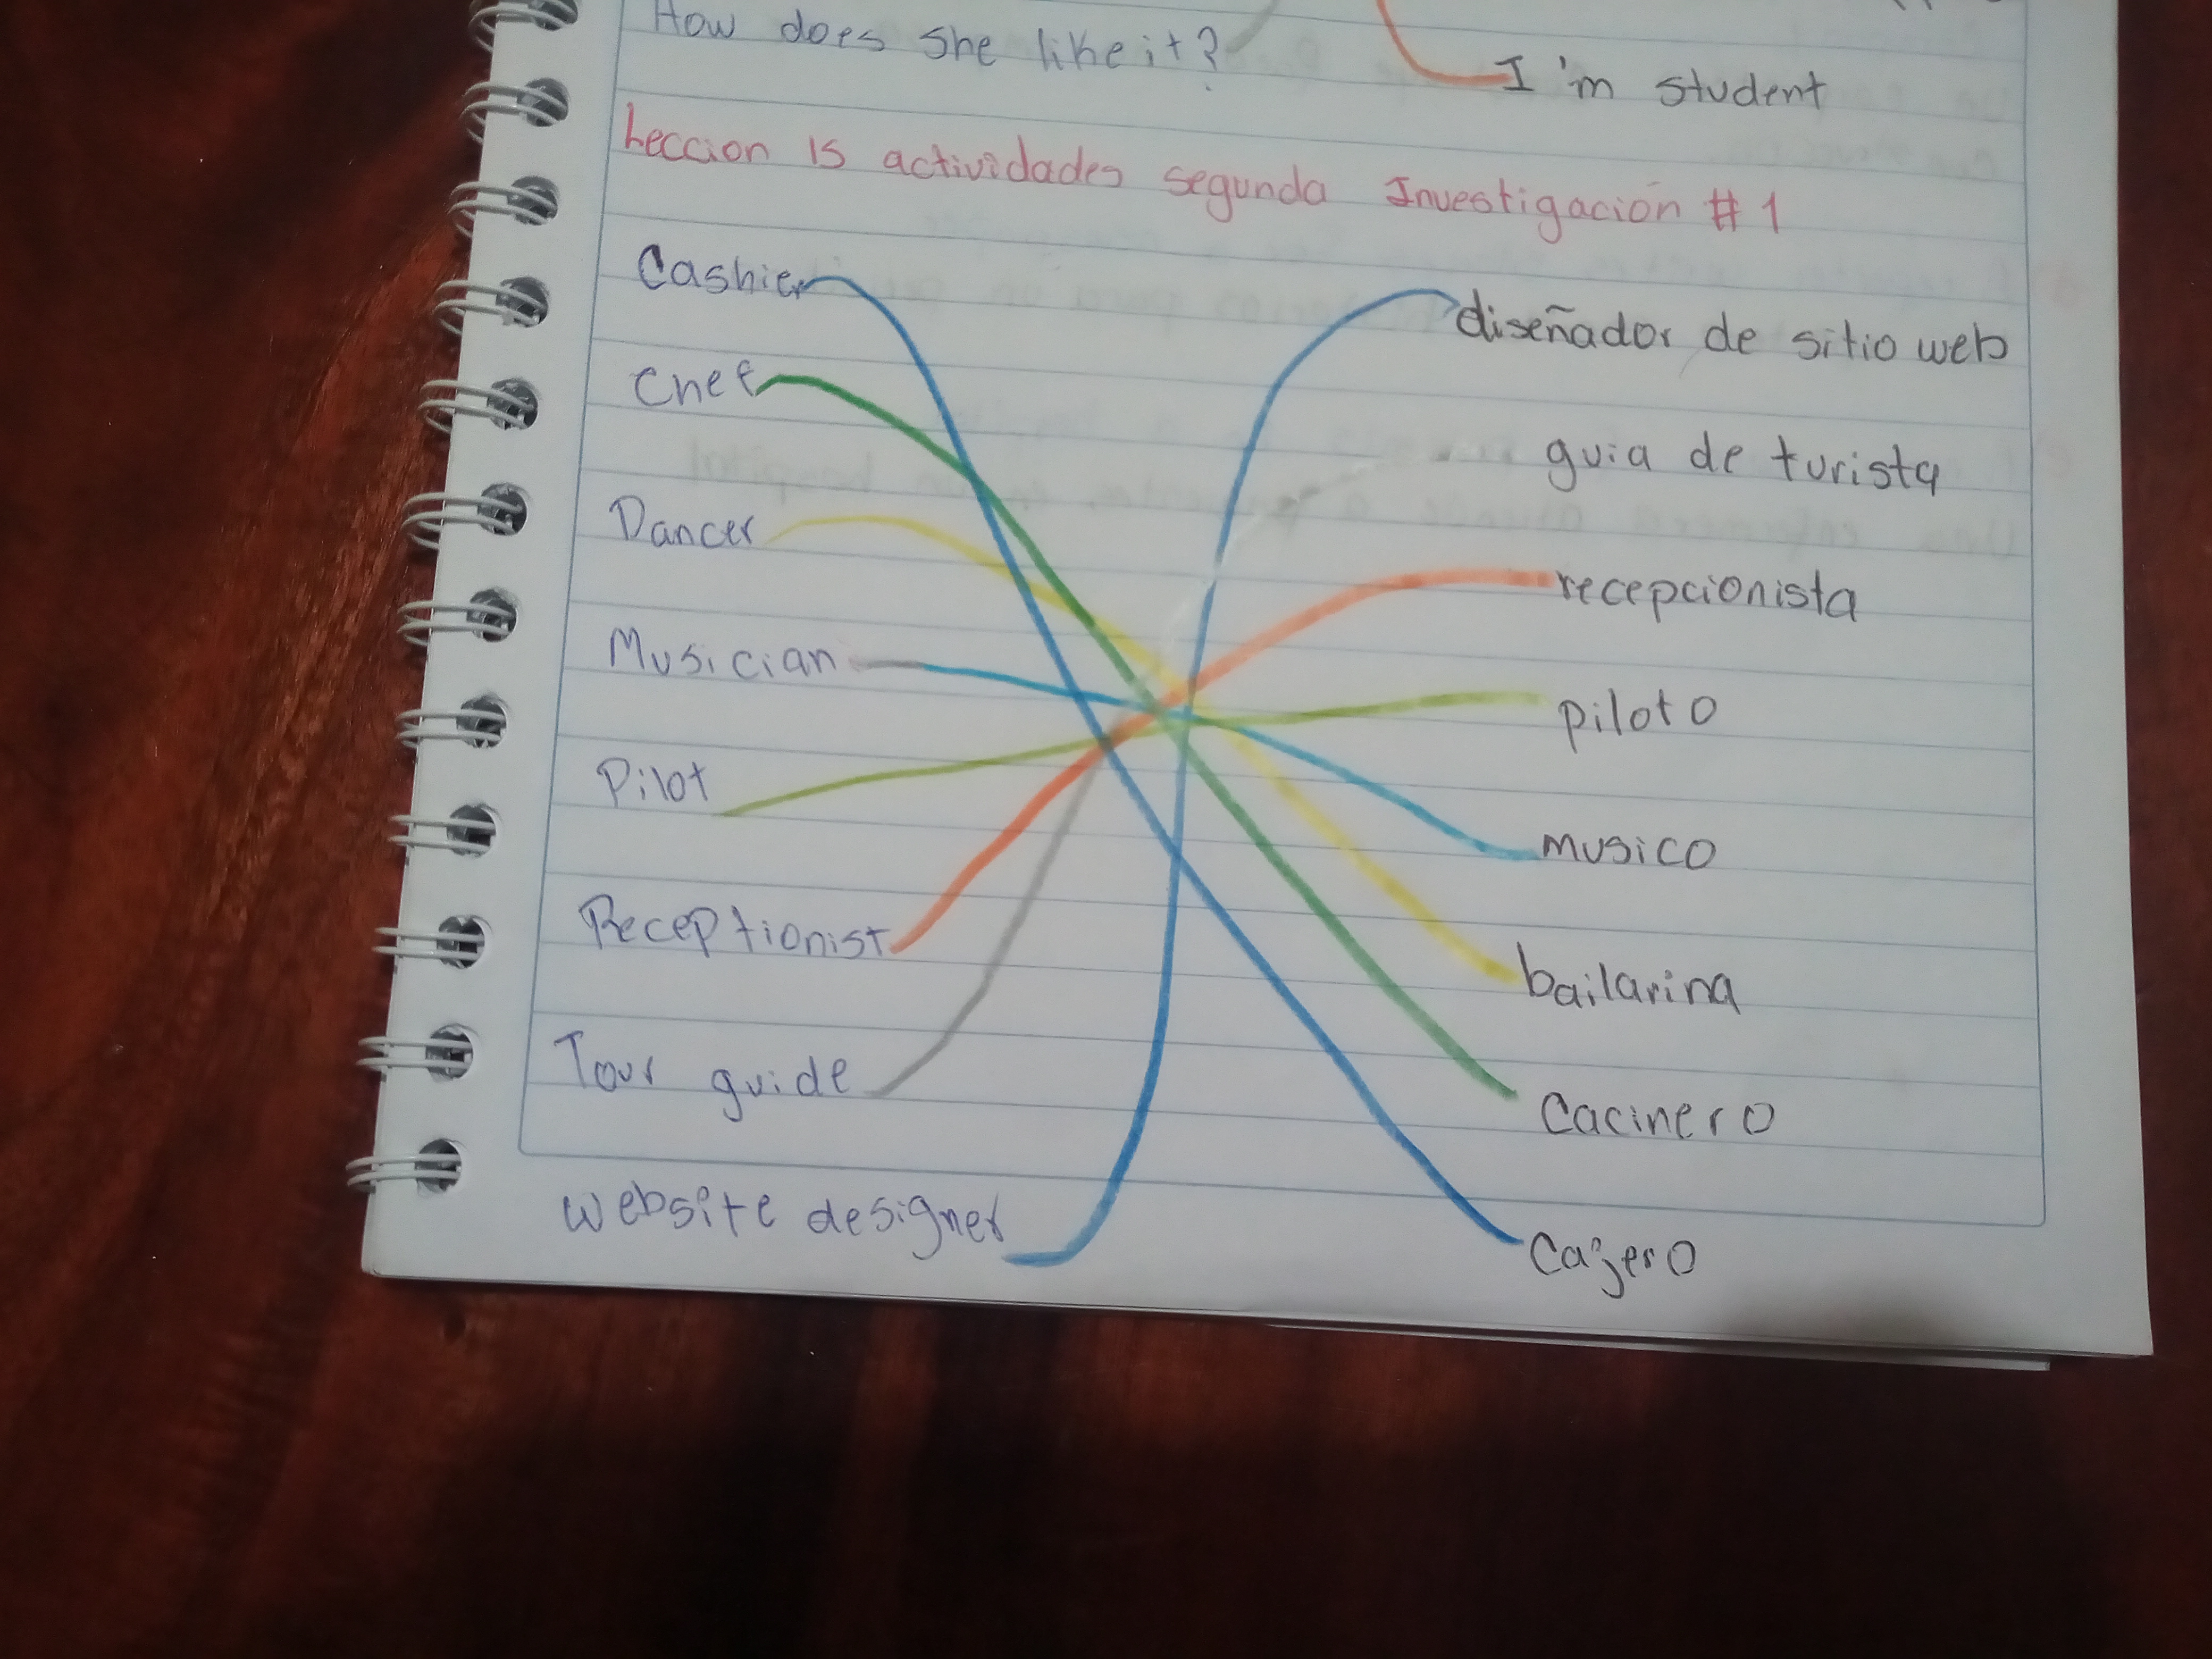 How does she like it?
I'm student
Leccion 15 actividades segunda Investigación # 1
Cashier
diseñador de sitio web
Chef
guia de turista
Dancer
recepcionista
Musician
piloto
Pilot
musico
Receptionist
bailarina
Tour guide
Cacinero
website designer
Cajero